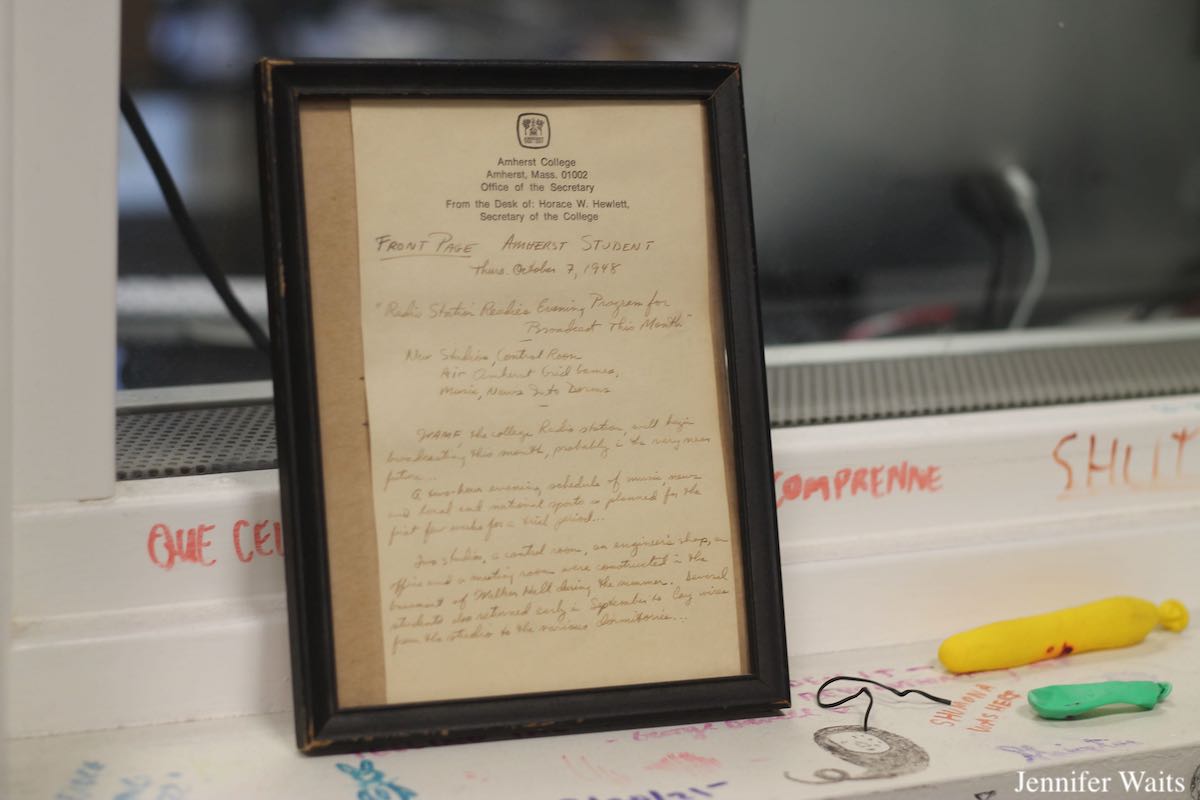 Amherst College
Amherst, Mass. 01002
Office of the Secretary
From the Desk of: Horace W. Hewlett,
Secretary of the College
FRONT PAGE AMHERST STUDENT
Thurs. October 7, 1948
"Radio Station Readies Evening Program for
Broadcast This Month"
New Studios, Control Room
Air Amherst Grid Games,
Music, News Into Dorms
WAMF the college Radio station, will begin
broadcasting this month, probably in the very near
future...
A two-hour evening schedule of music, news
and local and national sports is planned for the
first few weeks for a trial period...
Two studios, a control room, an engineer's shop, an
office and a meeting room were constructed in the
basement of Hall during the summer. Several
students also returned early in September to lay wires
from the studio to the various dormitories...
QUE CEL
COMPRENNE
SHUT
SHIMONA
WAS HERE
George
Jennifer Waits